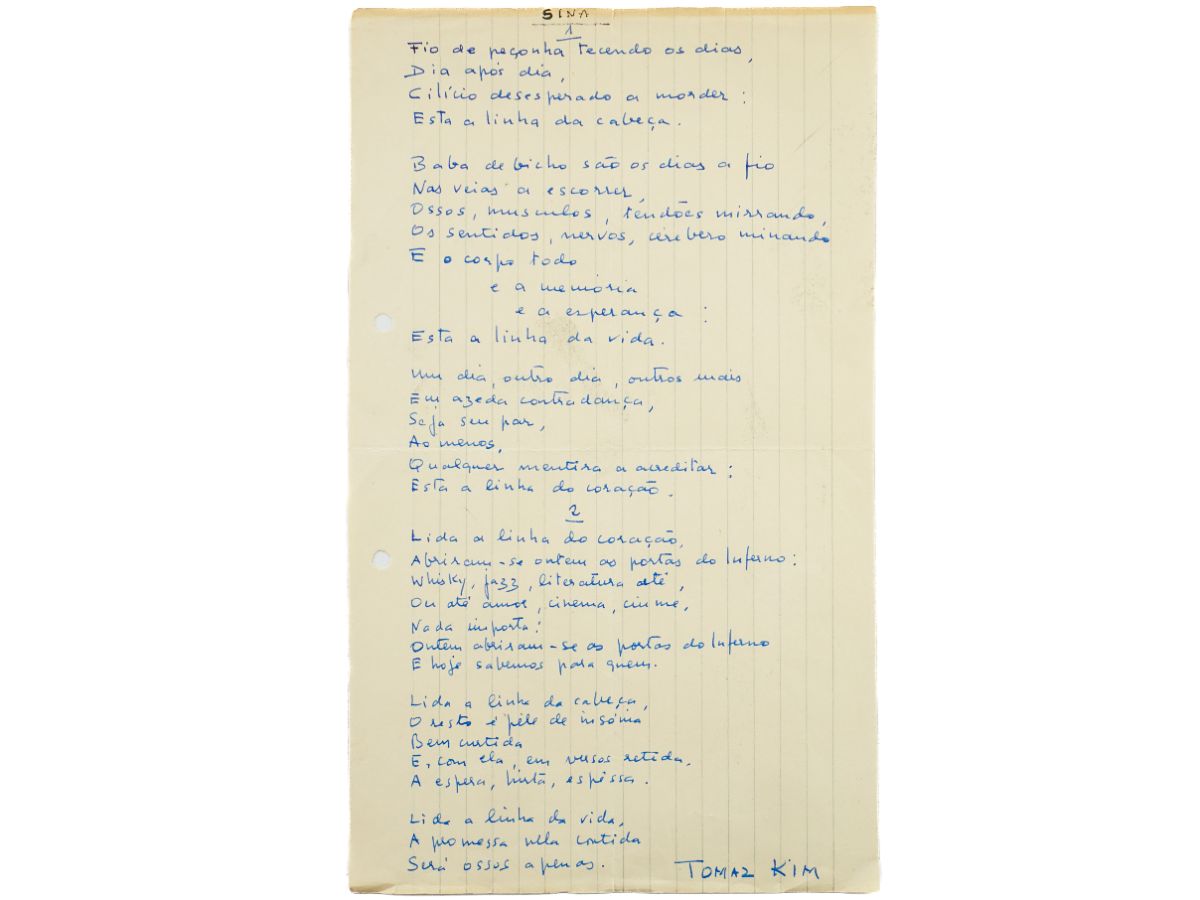 SINA
1
Fio de peçonha tecendo os dias,
Dia após dia,
Cilício desesperado a morder:
Esta a linha da cabeça.
Baba de bicho são os dias a fio
Nas veias a escorrer,
Ossos, musculos, tendões mirrando,
Os sentidos, nervos, cérebero minando
E o corpo todo
e a memória
e a esperança:
Esta a linha da vida.
Um dia, outro dia, outros mais
Em azeda contradança,
Seja seu par,
Ao menos,
Qualquer mentira a acreditar:
Esta a linha do coração.
2
Lida a linha do coração,
Abriram-se ontem as portas do Inferno:
Whisky, jazz, literatura até,
Ou até amor, cinema, ciume,
Nada importa:
Ontem abriram-se as portas do Inferno
E hoje sabemos para quem.
Lida a linha da cabeça,
O resto é pele de insónia
Bem curtida
E, com ela, em versos retida,
A espera, hirta, espéssa.
Lida a linha da vida,
A promessa nela contida
Será ossos apenas.
TOMAZ KIM